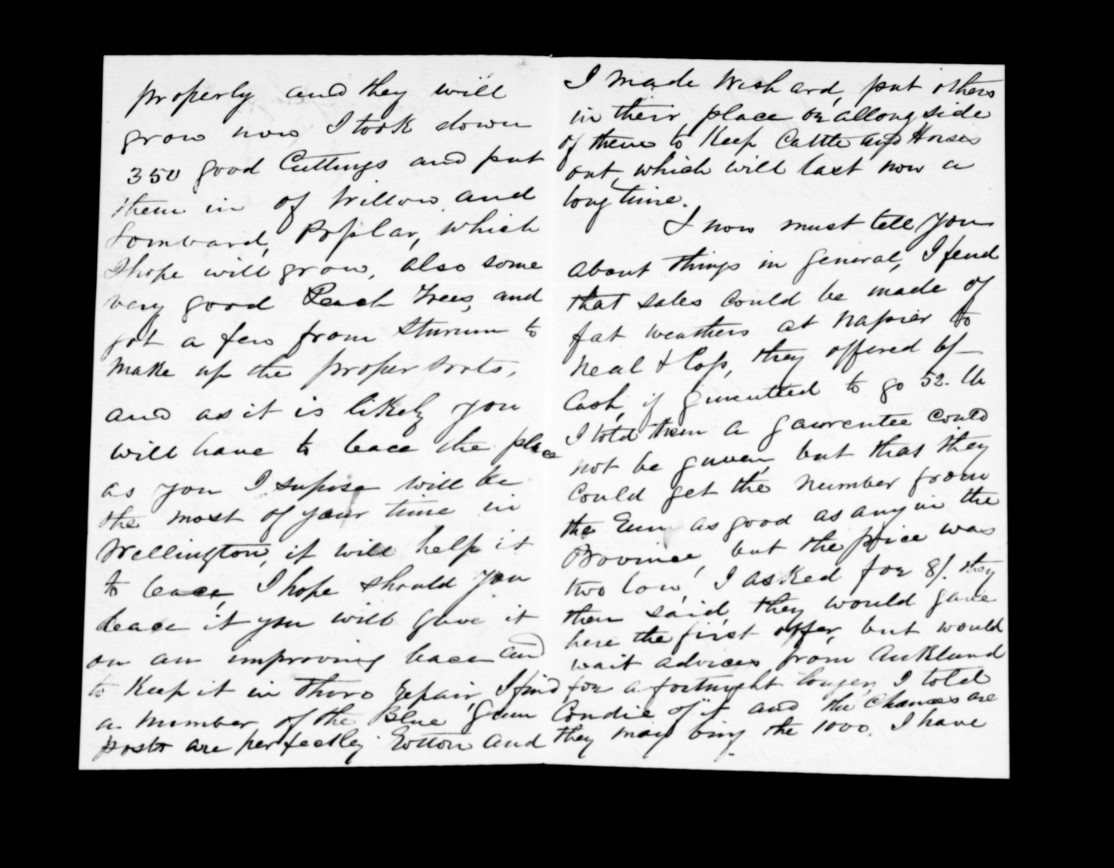 properly and they will
grow now I took down
350 good Cuttings and put
them in of Willow and
Lombard, Poplar, which
I hope will grow, also some
very good Peach Trees, and
got a few from to
make up the proper sorts,
and as it is likely you
will have to leace the place
as you I supose will be
the most of your time in
Wellington, it will help it
to leace, I hope should you
leace it you will give it
on an improving leace and
to Keep it in thoro repair, I find
a number of the Blue Gum
posts are perfectley Rotton and
I made put others
in their place or allong side
of them to Keep Cattle and Horses
out, which will last now a
long time.
I now must tell you
about things in General, I find
that sales could be made of
fat weathers at Napier to
Neal & they offered 6/-
Cash, if to go 52. lb
I told them a gaurentee could
not be given, but that they
could get the number from
the Run as good as any in the
Province, but the price was
two low, I asked for 8/. they
then said, they would gave
here the first offer, but would
wait advices from Aukland
for a fortnight longer, I told
Condie of it and the Chances are
they may the 1000. I have